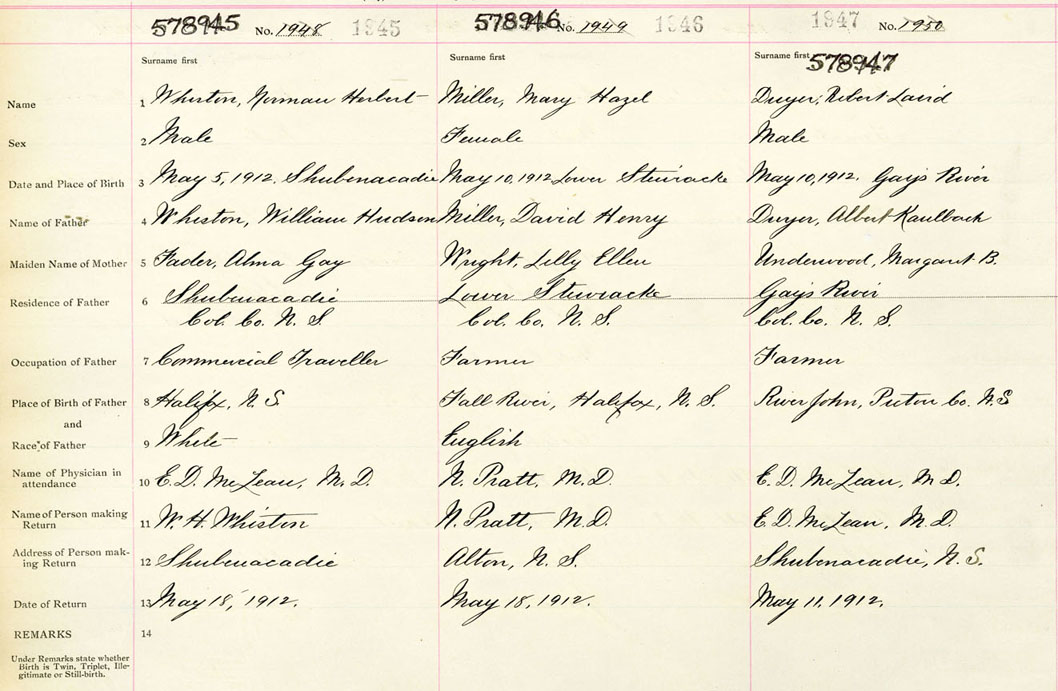 578945 No. 1948 1845 578946 No. 1949 1846 1847 No. 1950
Surname first Surname first Surname first 578947
Name 1 Whiston, Norman Herbert Miller, Mary Hazel Dwyer, Robert David
Sex 2 Male Female Male
Date and Place of Birth 3 May 5, 1912. Shubenacadie May 10, 1912 Lower Stewiacke May 10, 1912. Gays River
Name of Father 4 Whiston, William Hudson Miller, David Henry Dwyer, Albert Kaulback
Maiden Name of Mother 5 Fader, Alma Gay Wright, Lilly Ellen Underwood, Margaret B.
Residence of Father 6 Shubenacadie Lower Stewiacke Gays River
Col. Co. N. S. Col. Co. N. S. Col. Co. N. S.
Occupation of Father 7 Commercial Traveller Farmer Farmer
Place of Birth of Father 8 Halifax, N. S. Fall River, Halifax, N. S. River John, Pictou Co. N. S
and
Race of Father 9 White English
Name of Physician in
attendance 10 E. D. McLean, M. D. N. Pratt, M. D. E. D. McLean, M. D.
Name of Person making
Return 11 W. H. Whiston N. Pratt, M. D. E. D. McLean, M. D.
Address of Person mak-
ing Return 12 Shubenacadie Alton, N. S. Shubenacadie, N. S.
Date of Return 13 May 18, 1912. May 18, 1912. May 11, 1912.
REMARKS 14
Under Remarks state whether
Birth is Twin, Triplet, Ille-
gitimate or Still-birth.